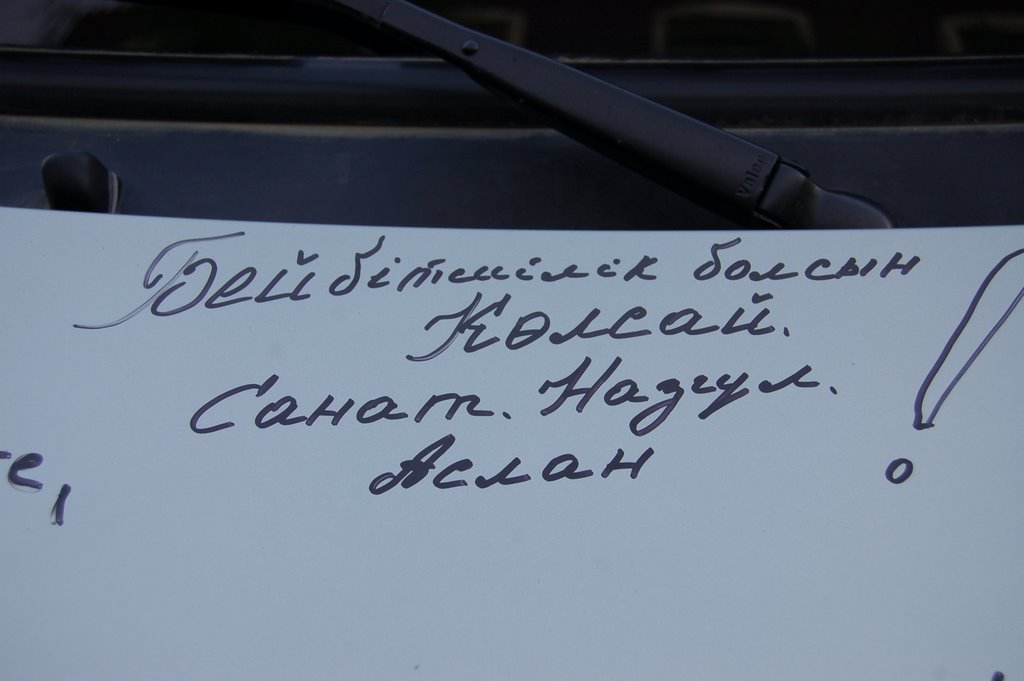 Valeo
Бейбітшілік болсын
Көлсай.
Санат. Назгул.
Аслан
!